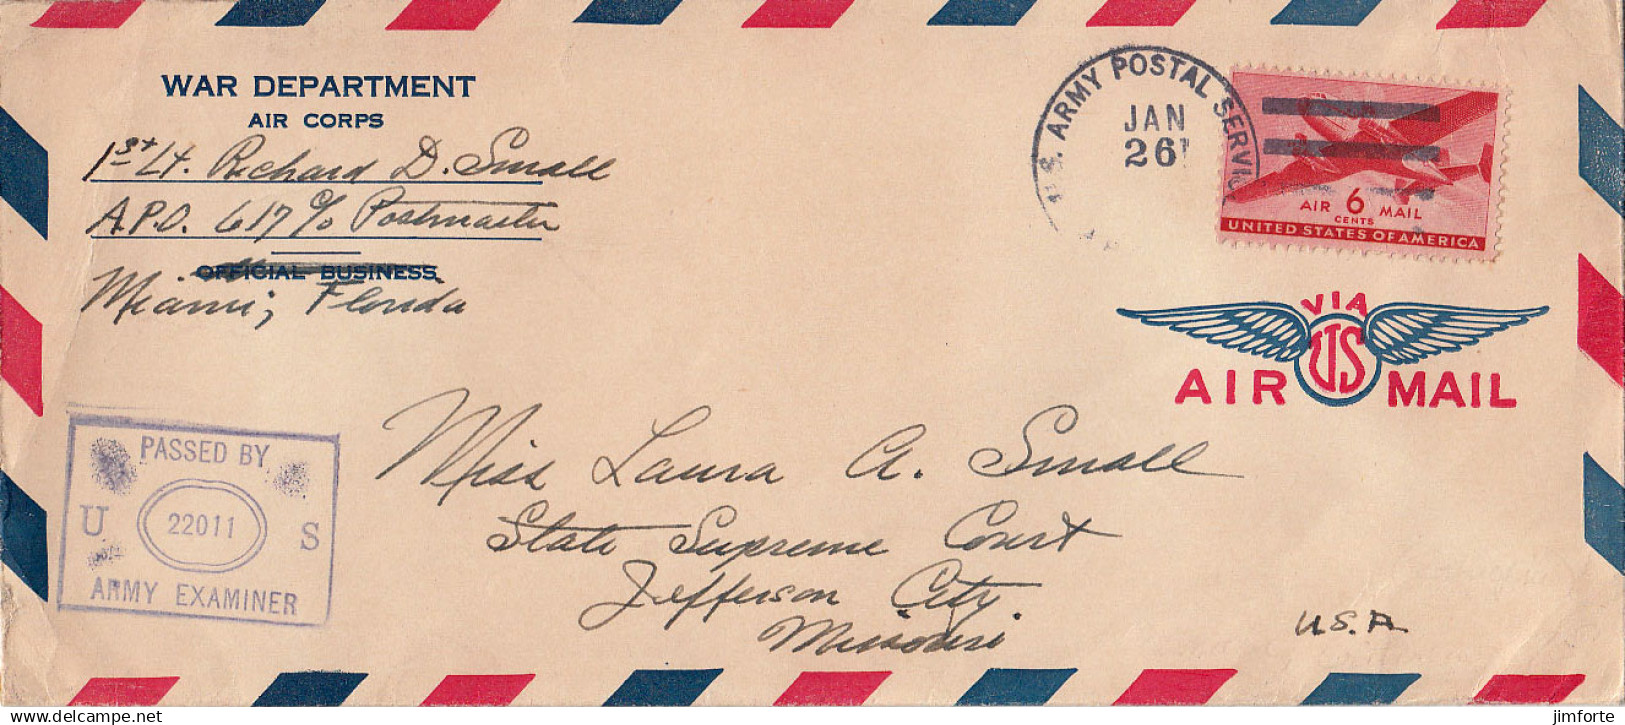 WAR DEPARTMENT
AIR CORPS
1st Lt. Richard D. Small
A.P.O. 617 c/o Postmaster
OFFICIAL BUSINESS
Miami, Florida
U.S. ARMY POSTAL SERVICE
JAN
26
AIR 6 MAIL
CENTS
UNITED STATES OF AMERICA
VIA
US
AIR MAIL
PASSED BY
U 22011 S
ARMY EXAMINER
Miss Laura A. Small
State Supreme Court
Jefferson City.
Missouri
U.S.A
jimforte